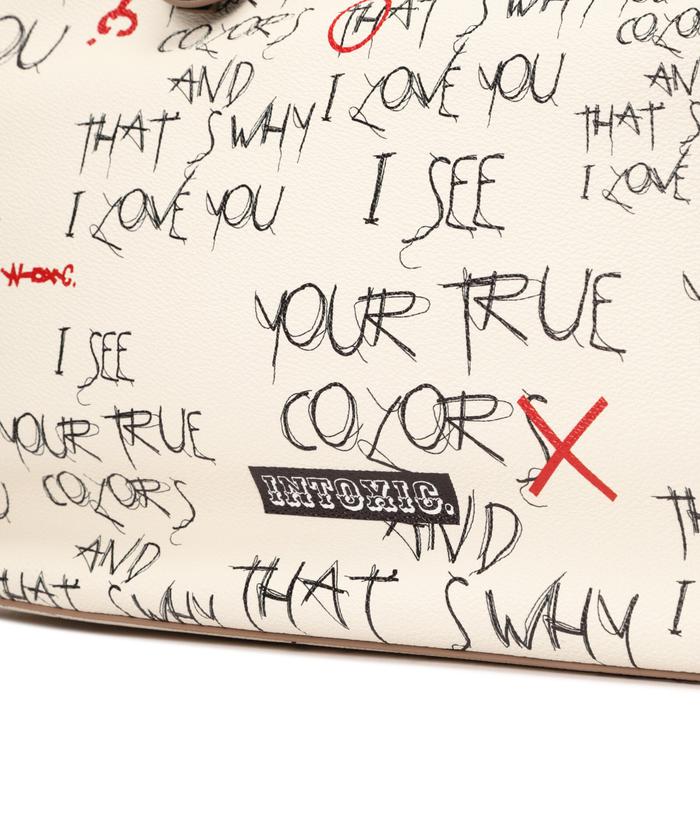 OU
COLORS
AND
THAT'S WHY
I LOVE YOU
THAT'S WHY
I LOVE YOU
COLO
AN
THAT'S
I LOVE
I SEE
YOUR TRUE
COLORS
INTOXIC.
AND
THAT'S WHY
I SEE
YOUR TRUE
COLORS
AND
THAT'S WHY
TH
I